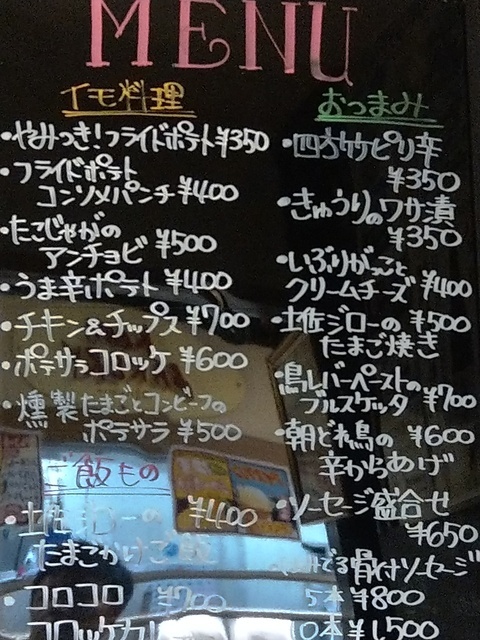 MENU
イモ料理
・やみつき!フライドポテト¥350
・フライドポテト
コンソメパンチ¥400
・たこじゃがの
アンチョビ¥500
・うま辛ポテト¥400
・チキン&チップス¥700
・ポテサラコロッケ¥600
・燻製たまごとコンビーフの
ポテサラ¥500
ご飯もの
・土佐ジローの ¥400
たまごかけご飯
・コロコロ ¥700
コロッケカレー
おつまみ
・四方竹ピリ辛
¥350
・きゅうりのワサ漬
¥350
・いぶりがっこと
クリームチーズ¥400
・土佐ジローの¥500
たまご焼き
・鳥レバーペーストの
ブルスケッタ¥700
・朝どれ鳥の¥600
辛からあげ
・ソーセージ盛合せ
¥650
骨付ソーセージ
5本¥800
10本¥1,500